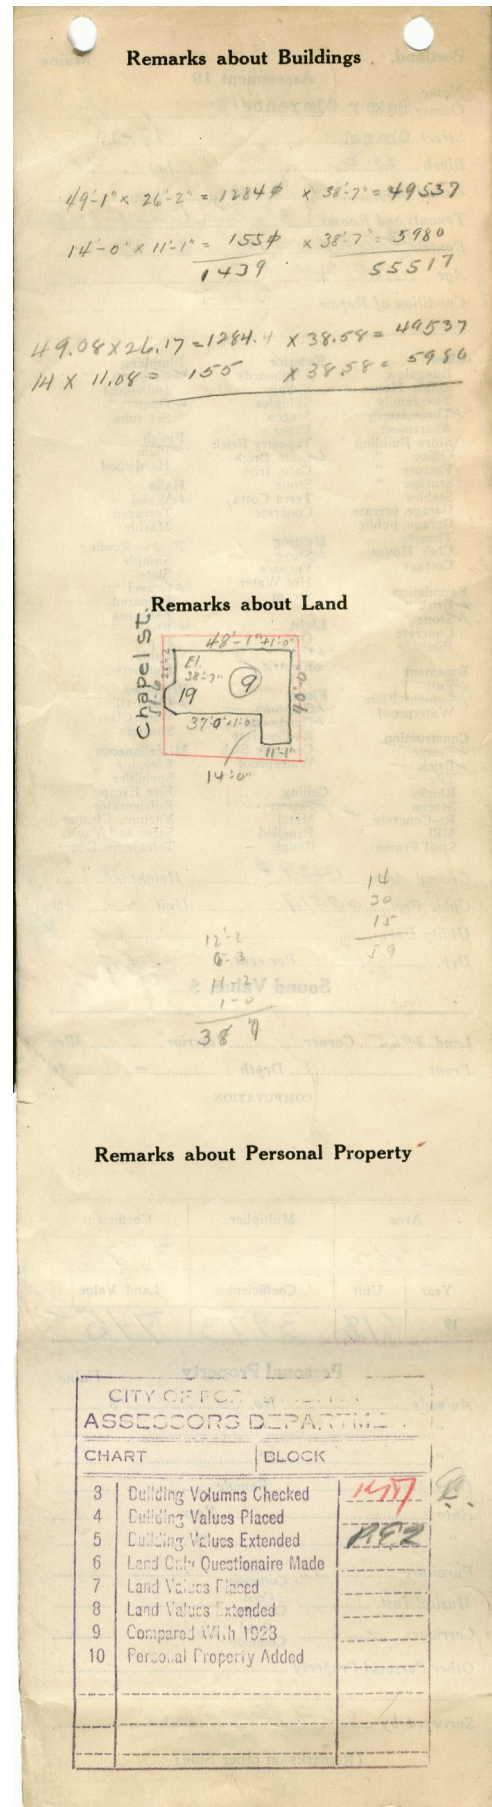 Remarks about Buildings
49'-1" x 26'-2" = 1284ϕ x 38'-7" = 49537
14'-0" x 11'-1" = 155ϕ x 38'-7" = 5980
1439 55517
49.08 x 26.17 = 1284.4 x 38.58 = 49537
14 x 11.08 = 155 x 38.58 = 5980
Remarks about Land
Chapel St.
48'-1" +1'-0"
El.
38'-7"
19
9
40'-0"
37'-0" +1'-0"
11'-1"
14'-0"
14
30
15
59
12'-2
6-3
11-2
1-0
38 7
Remarks about Personal Property
CITY OF POR
ASSESSORS DEPARTME
CHART BLOCK
3 Building Volumns Checked
4 Building Values Placed
5 Building Values Extended
6 Land Only Questionaire Made
7 Land Values Placed
8 Land Values Extended
9 Compared With 1923
10 Personal Property Added